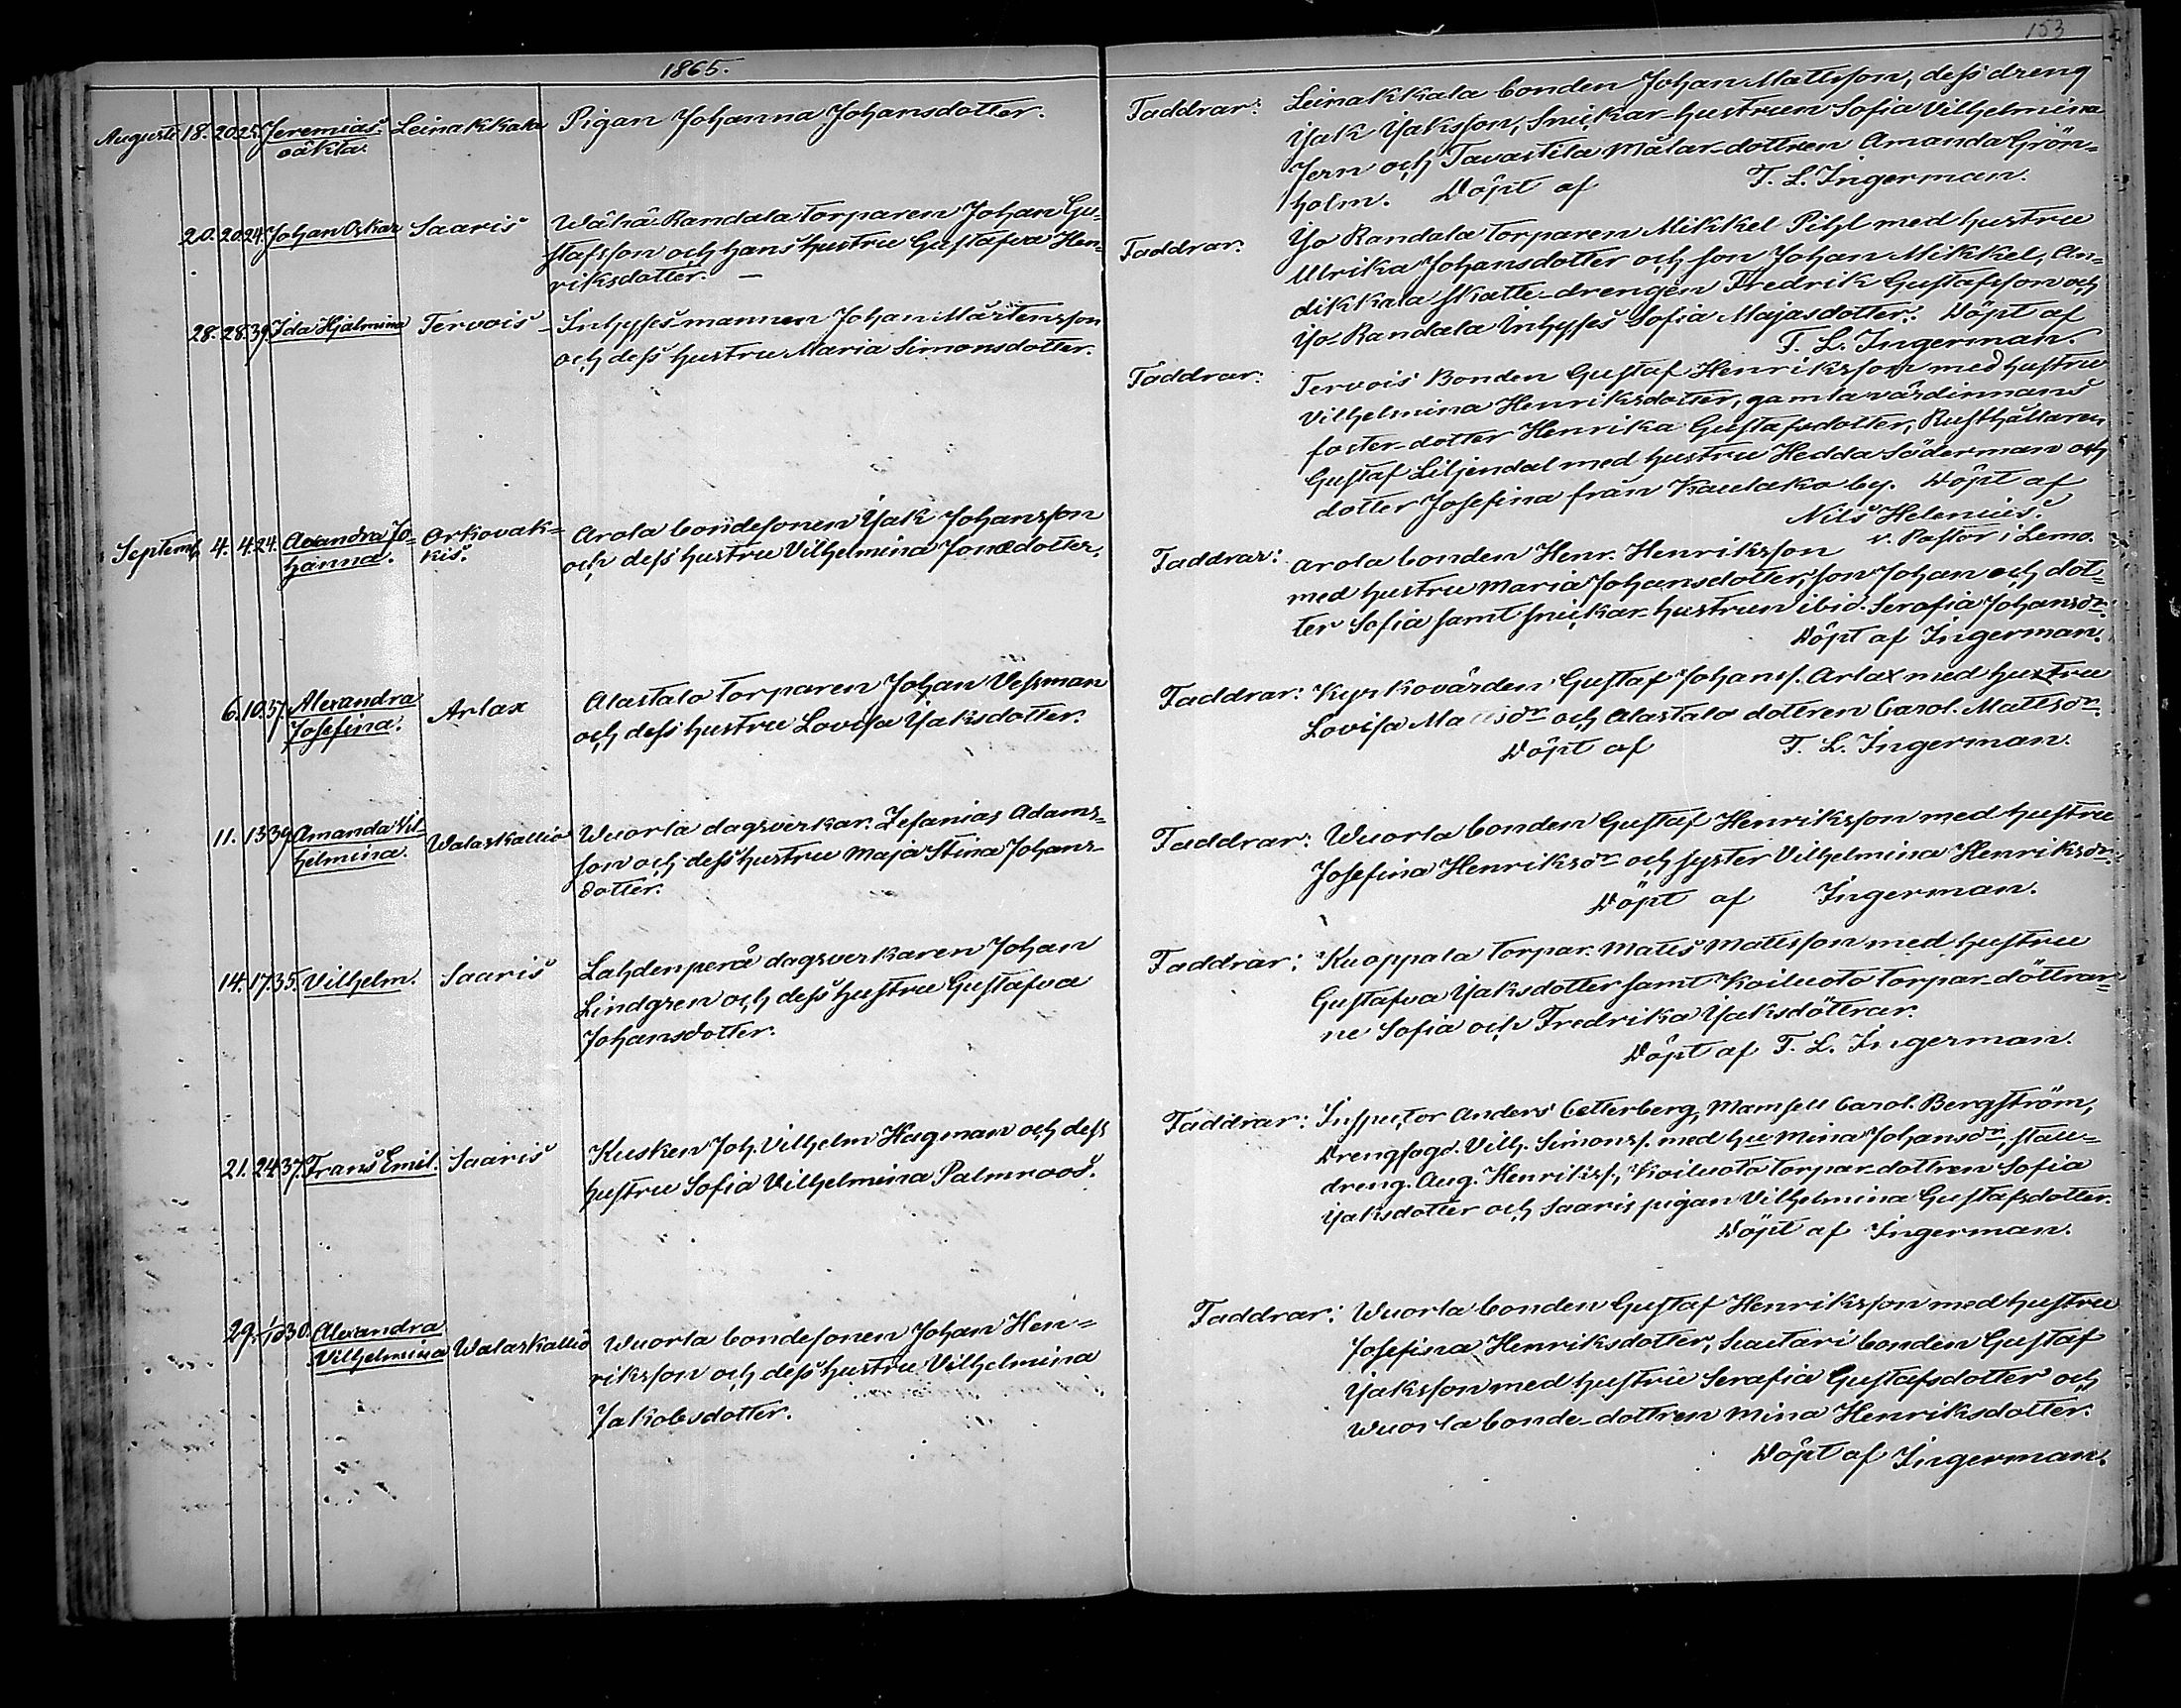 153
1865.
Augusti 18. 20. 25. Jeremias Leinakkala Pigan Johanna Johansdotter.
oäkta.
Faddrar: Leinakkala bonden Johan Mattsson, dess dreng
Isak Isaksson, Snickar-hustrun Sofia Vilhelmina
Jern och Tavastila Målar-dottren Amanda Grön=
holm. Döpt af T. L. Ingerman.
20. 20. 24. Johan Oskar Saaris Wähä-Randala torparen Johan Gu=
stafsson och hans hustru Gustafva Hen=
riksdotter. —
Faddrar. Yo Randala torparen Mikkel Pihl med hustru
Ulrika Johansdotter och son Johan Mikkel, An=
dikkala skatte-drengen Fredrik Gustafsson och
Yo-Randala Inhyses Sofia Majasdotter. Döpt af
T. L. Ingerman.
28. 28. 39. Ida Hjalmina Tervois Inhysesmannen Johan Mårtensson
och dess hustru Maria Simonsdotter.
Faddrar: Tervois Bonden Gustaf Henriksson med hustru
Vilhelmina Henriksdotter, gamla värdinnans
foster-dotter Henrika Gustafsdotter, Rusthållaren
Gustaf Liljendal med hustru Hedda Söderman och
dotter Josefina från Kaulako by. Döpt af
Nils Helenius.
v. Pastor i Lemo.
Septemb. 4. 4. 24. Alexandra Jo= Orkovak= Arola bondesonen Isak Johansson
hanna. kis. och dess hustru Vilhelmina Jonædotter.
Faddrar: Arola bonden Henr. Henriksson
med hustru Maria Johansdotter, son Johan och dot=
ter Sofia samt snickar-hustrun ibid. Serafia Johansdr.
Döpt af Ingerman.
6. 10. 37. Alexandra Arlax Alastalo torparen Johan Vessman
Josefina. och dess hustru Lovisa Isaksdotter.
Faddrar: Kyrkovärden Gustaf Johanss. Arlax med hustru
Lovisa Mattsdr och Alastalo dottren Carol. Mattsdr.
Döpt af T. L. Ingerman.
11. 13. 39. Amanda Vil= Walaskallio Wuorla dagsverkar. Zefanias Adams=
helmina. son och dess hustru Maja Stina Johans-
dotter.
Faddrar: Wuorla bonden Gustaf Henriksson med hustru
Josefina Henriksdr och syster Vilhelmina Henriksdr.
Döpt af Ingerman.
14. 17. 35. Vilhelm. Saaris Lahdenperä dagsverkaren Johan
Lindgren och dess hustru Gustafva
Johansdotter.
Faddrar: Kuoppala torpar. Matts Mattsson med hustru
Gustafva Isaksdotter samt Koiluoto torpar-döttrar=
ne Sofia och Fredrika Isaksdöttrar.
Döpt af T. L. Ingerman.
21. 24. 37. Frans Emil. Saaris Kusken Joh. Vilhelm Hagman och dess
hustru Sofia Vilhelmina Palmroos.
Faddrar: Inspector Anders Cetterberg, Mamsell Carol. Bergström,
Drengfogd. Vilh. Simonss. med hu Mina Johansdr, stall=
dreng. Aug. Henrikss., Koiluoto torpar-dottren Sofia
Isaksdotter och Saaris pigan Vilhelmina Gustafsdotter.
Döpt af Ingerman.
29. 1/10 30. Alexandra Walaskallio Wuorla bondesonen Johan Hen=
Vilhelmina riksson och dess hustru Vilhelmina
Jakobsdotter.
Faddrar: Wuorla bonden Gustaf Henriksson med hustru
Josefina Henriksdotter, Sautari bonden Gustaf
Isaksson med hustru Serafia Gustafsdotter och
Wuorla bonde-dottren Mina Henriksdotter.
Döpt af Ingerman.